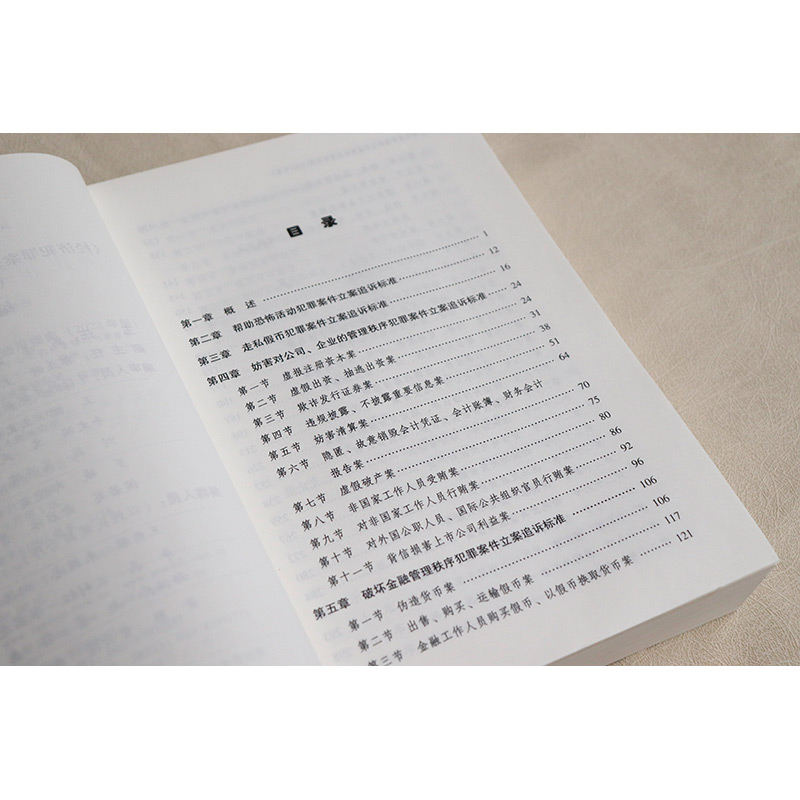 目 录
第一章 概 述 1
第二章 帮助恐怖活动犯罪案件立案追诉标准 12
第三章 走私假币犯罪案件立案追诉标准 16
第四章 妨害对公司、企业的管理秩序犯罪案件立案追诉标准 24
第一节 虚报注册资本案 24
第二节 虚假出资、抽逃出资案 31
第三节 欺诈发行证券案 38
第四节 违规披露、不披露重要信息案 51
第五节 妨害清算案 64
第六节 隐匿、故意销毁会计凭证、会计账簿、财务会计
报告案 70
第七节 虚假破产案 75
第八节 非国家工作人员受贿案 80
第九节 对非国家工作人员行贿案 86
第十节 对外国公职人员、国际公共组织官员行贿案 92
第十一节 背信损害上市公司利益案 96
第五章 破坏金融管理秩序犯罪案件立案追诉标准 106
第一节 伪造货币案 106
第二节 出售、购买、运输假币案 117
第三节 金融工作人员购买假币、以假币换取货币案 121